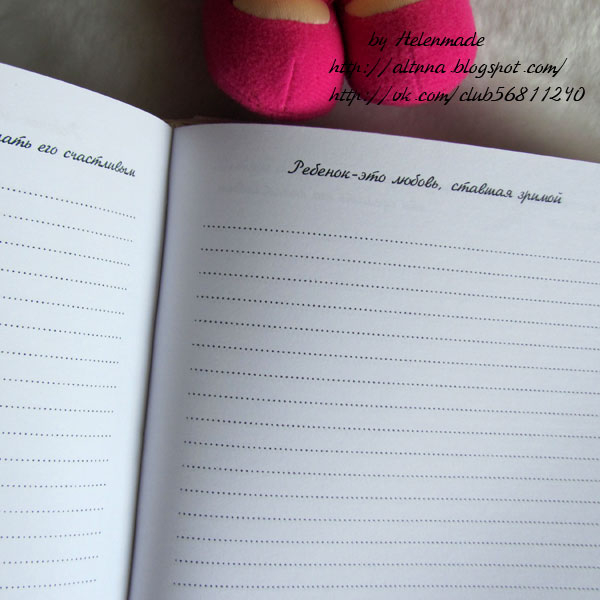 by Helenmade
http://altnna.blogspot.com/
http://vk.com/club56811240
его счастливым
Ребенок-это любовь, ставшая зримой